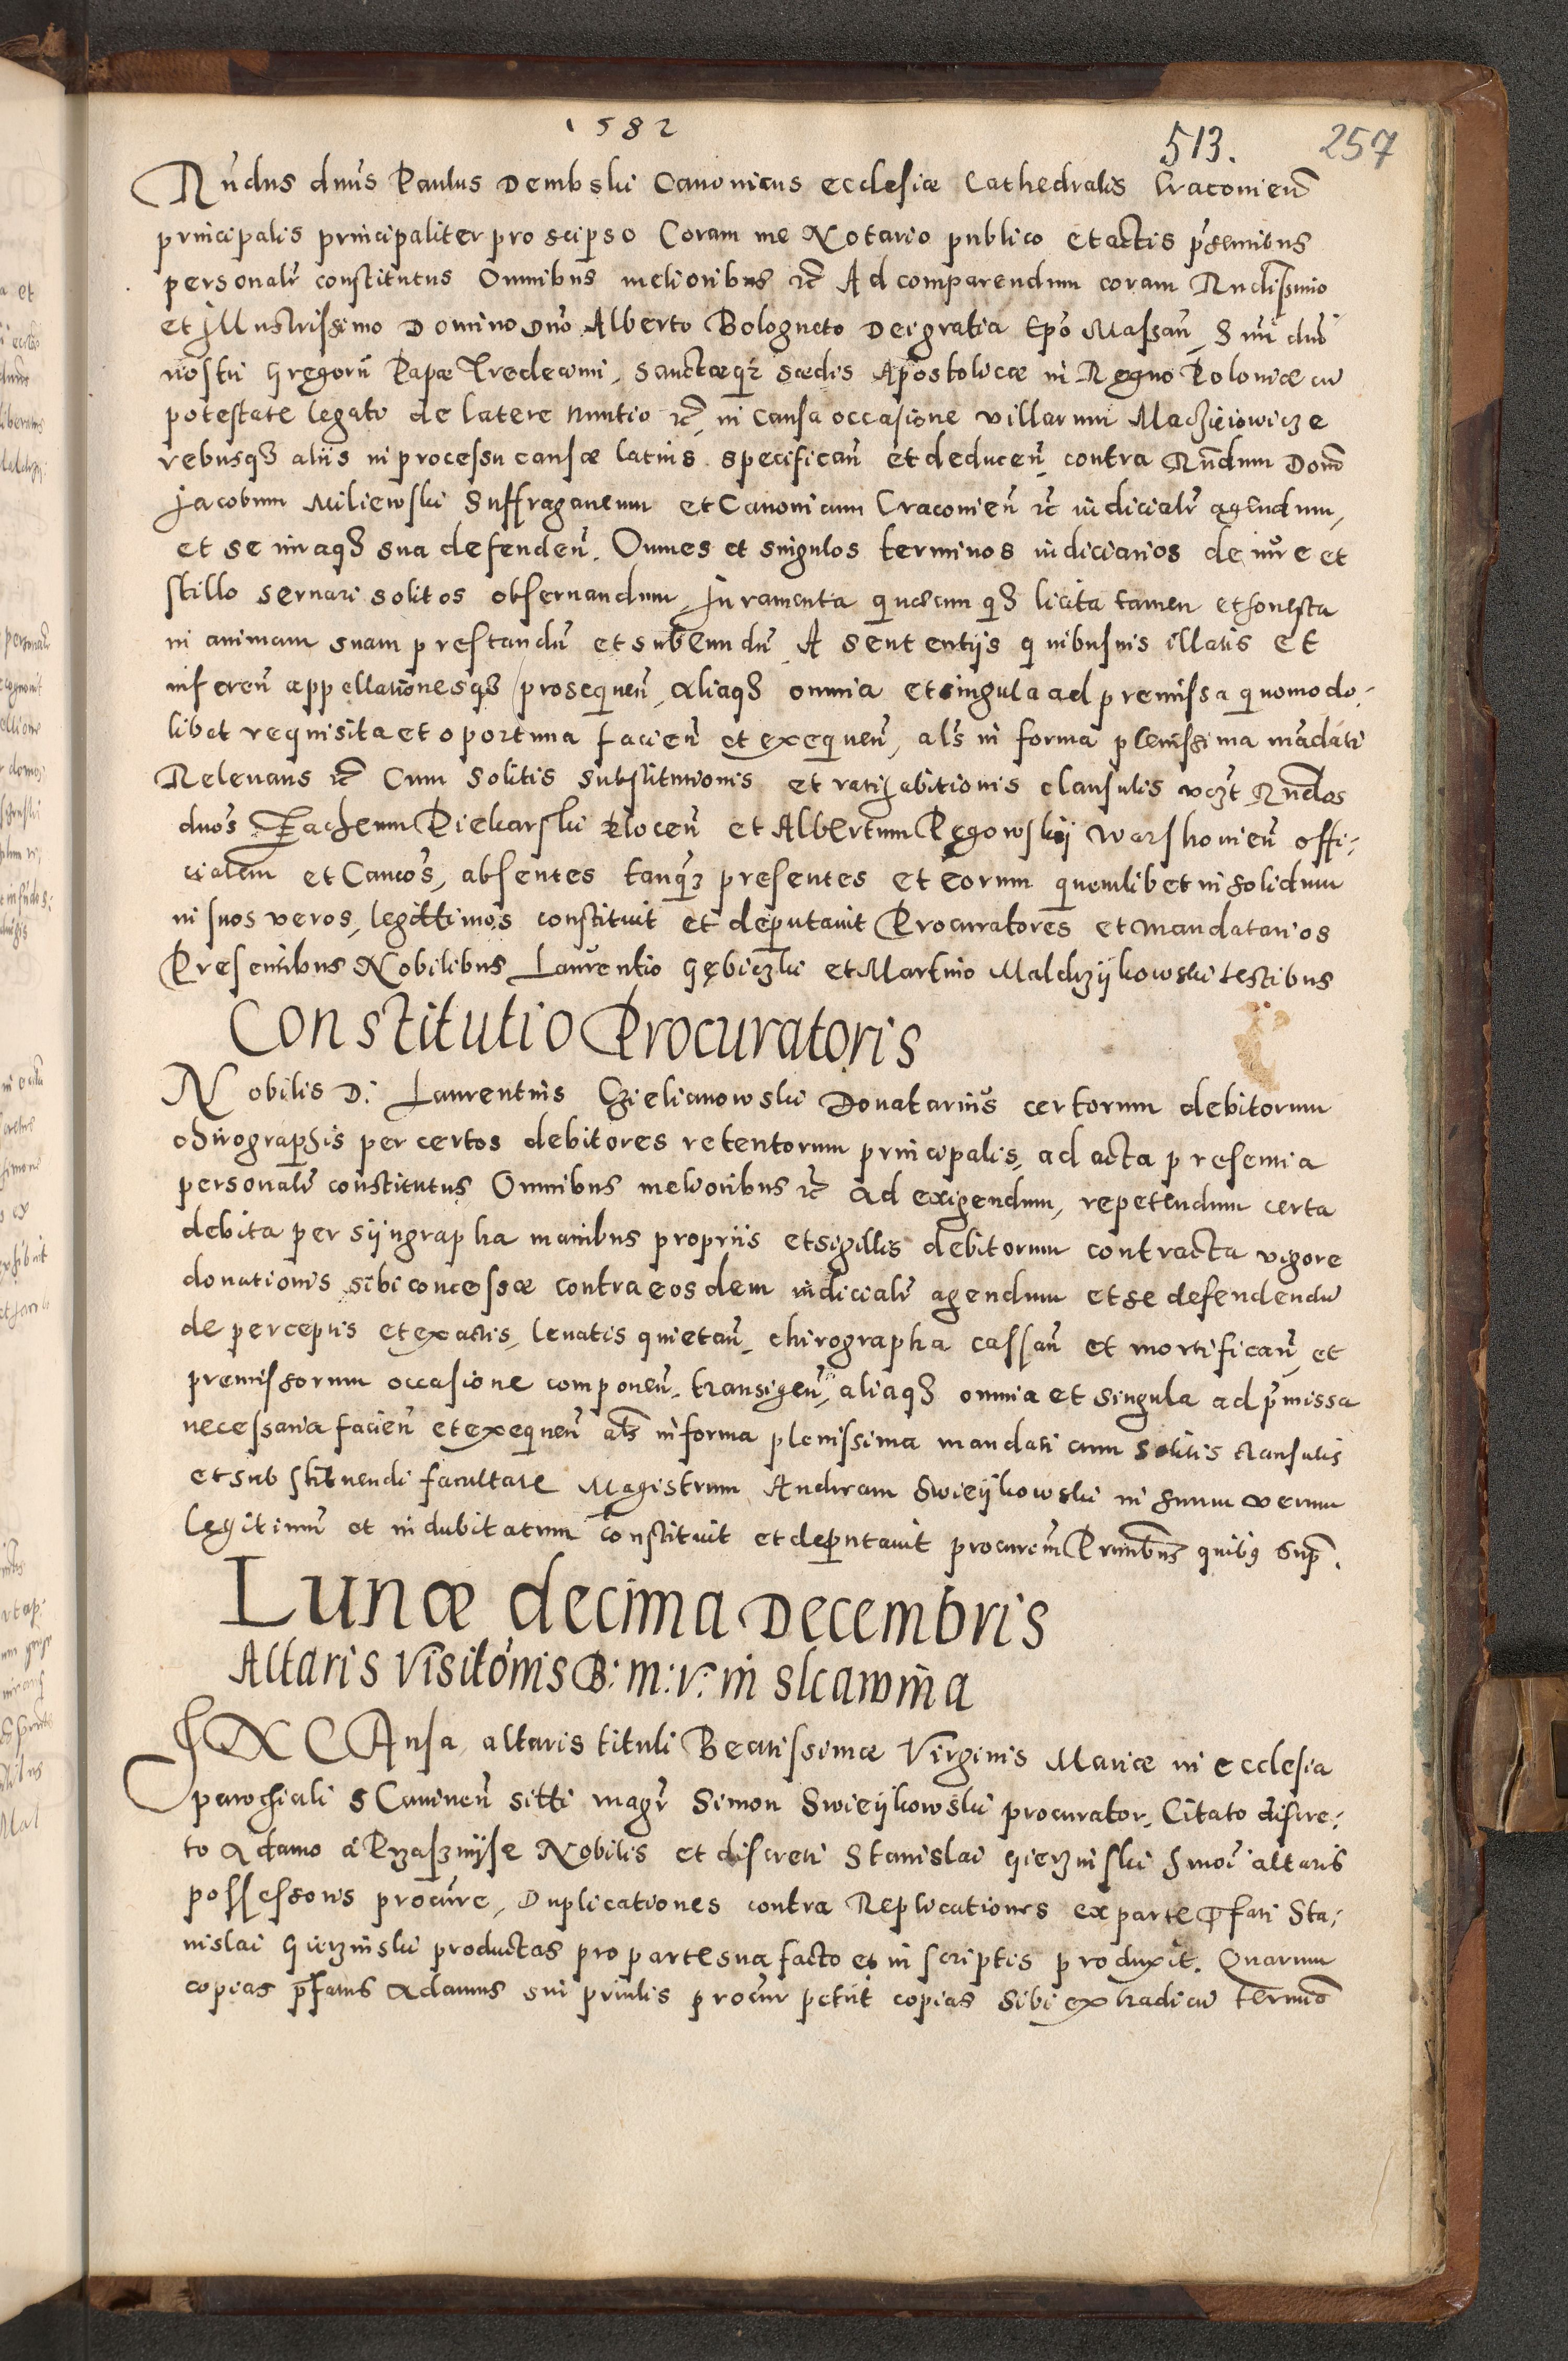 1582
513. 257
Rñdus dnūs Paulus Dembski Canonicus ecclesiæ Cathedralis Cracovieñ
principalis principaliter pro seipso Coram me Notario publico et actis p̃sentibus
personalr̃ constitutus Omnibus melioribus rc̃ Ad comparendum coram Rndissimo
et Illustrissimo Domino Dnō Alberto Bologneto Dei gratia Epō Massañ, S mi dni
nostri Gregorii Papæ Tredecimi, sanctæqꝫ sædis Apostolicæ in Regno Poloniæ cū
potestate legati de latere nuntio rc̃, in causa occasione villarum Maczieiowicze
rebusqꝫ aliis in processu causæ latius specificañ et deduceñ, contra Rñdum Domō
Jacobum Miliewski Suffraganeum et Canonicum Cracovieñ rc̃ iudicialr̃ agendum,
et se iuraqꝫ sua defendeñ. Omnes et singulos terminos iudiciarios de iure et
stillo seruari solitos obseruandum, Juramenta quæcunqꝫ licita tamen et honesta
in animam suam prestandū et subeundū, A sententijs quibusuis illatis et
infereñ appellationesqꝫ prosequeñ, aliaqꝫ omnia et singula ad premissa quomodo-
libet requisita et oportuna facieñ et exequeñ, als in forma plenissima mādati
Releuans rc̃ Cum solitis substitutionis et ratihabitionis clausulis vczt Rñdos
dnōs Zacheum Piekarski Ploceñ et Albertum Pęgowskij Warshovieñ offi-
cialem et Cancōs, absentes tanqꝫ presentes et eorum quemlibet in solidum
in suos veros, legittimos constituit et deputauit Procuratores et mandatarios
Presentibus Nobilibus Laurentio Gębiczki et Martino Maldrzijkowski testibus
Constitutio Procuratoris
Nobilis D: Laurentius Czielianowski Donatarius certorum debitorum
chirographis per certos debitores retentorum principalis, ad acta presentia
personalr̃ constitutus Omnibus melioribus rc̃ ad exigendum, repetendum certa
debita per sijngrapha manibus propriis et sigillis debitorum contracta vigore
donationis sibi concessæ contra eosdem iudicialr̃ agendum et se defendendū
de perceptis et exactis, leuatis quietañ, chirographa cassañ et mortificañ, et
premissorum occasione componeñ, transigeñ, aliaqꝫ omnia et singula ad p̃missa
necessaria facieñ et exequeñ als in forma plenissima mandati cum solitis clausulis
et substituendi facultate Magistrum Andream Swieijkowski in suum verum
Legitimū et indubitatum constituit et deputauit procurem̃ Prntibus quibꝫ sup̃.
Lunæ decima Decembris
Altaris Visitōnis B: M: V: in Skawina
IN CAusa altaris tituli Beatissimæ Virginis Mariæ in ecclesia
parochiali SCavineñ sitti magr̃ Simon Swieijkowski procurator, Citato discre-
to Adamo a Przasznijse Nobilis et discreti Stanislai Gierzinski s moī altaris
possessoris procure, Duplicationes contra Replicationes ex parte p̄fati Sta-
nislai Gierzinski productas pro parte sua facto et in scriptis produxit. Quarum
copias p̄fatus Adamus sui prinlis procur petiit copias sibi ex tradi cū termō